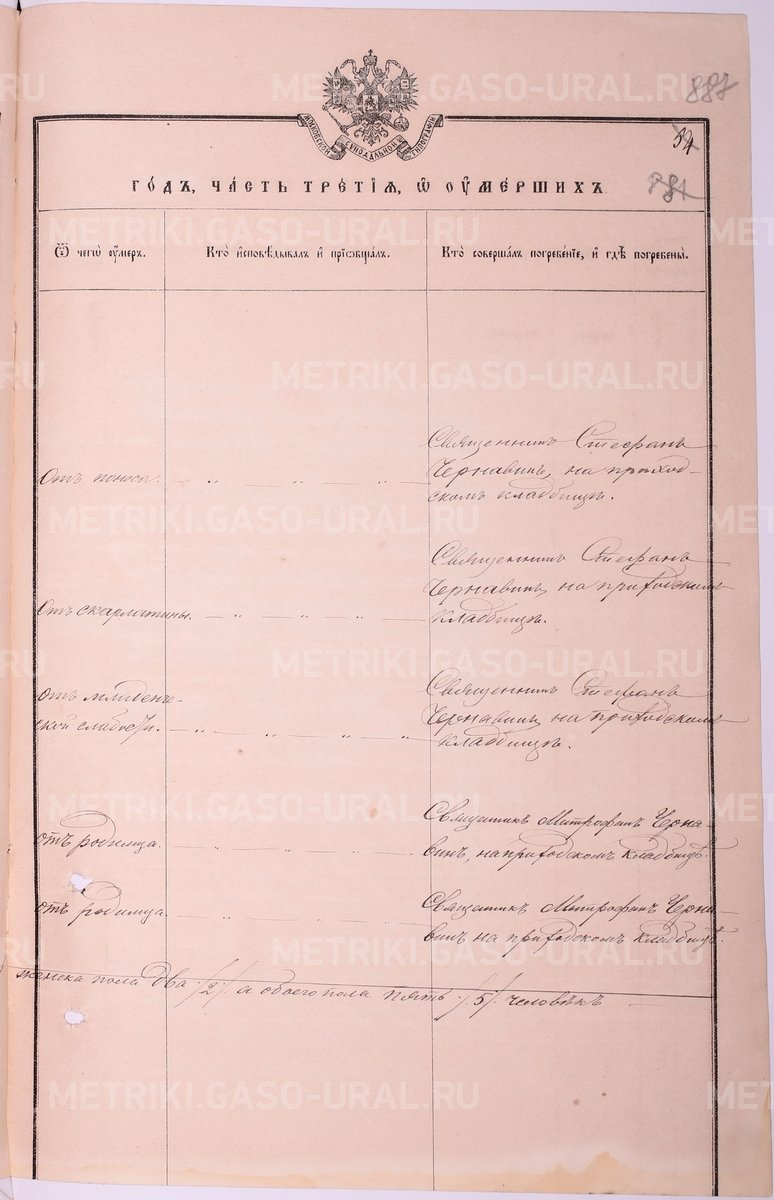 METRIKI.GASO-URAL.RU
887
МОСКОВСКОЙ СѴНОДАЛЬНОЙ ТИПОГРАФІИ
34
881
ГО́ДЪ, ЧА́СТЬ ТРЕ́ТІѦ, Ѡ҆ ОУ҆МЕ́РШИХЪ
Ѿ чегѡ̀ оу҆́меръ.
Кто̀ и҆сповѣ́дывалъ и҆ прїѡбща́лъ.
Кто̀ соверша́лъ погребе́нїе, и҆ гдѣ̀ погребены̀.
Отъ поноса.
Священникъ Стефанъ
Чернавинъ, на приход-
скомъ кладбищѣ.
Отъ скарлатины.
Священникъ Стефанъ
Чернавинъ, на приходскомъ
кладбищѣ.
отъ младенче-
ской слабости.
Священникъ Стефанъ
Чернавинъ, на приходскомъ
кладбищѣ.
отъ родимца.
Священникъ Митрофанъ Черна-
винъ, на приходскомъ кладбищѣ.
отъ родимца.
Священникъ Митрофанъ Черна-
винъ на приходскомъ кладбищѣ.
женска пола два /2/. а обоего пола пять /5/. человѣкъ.